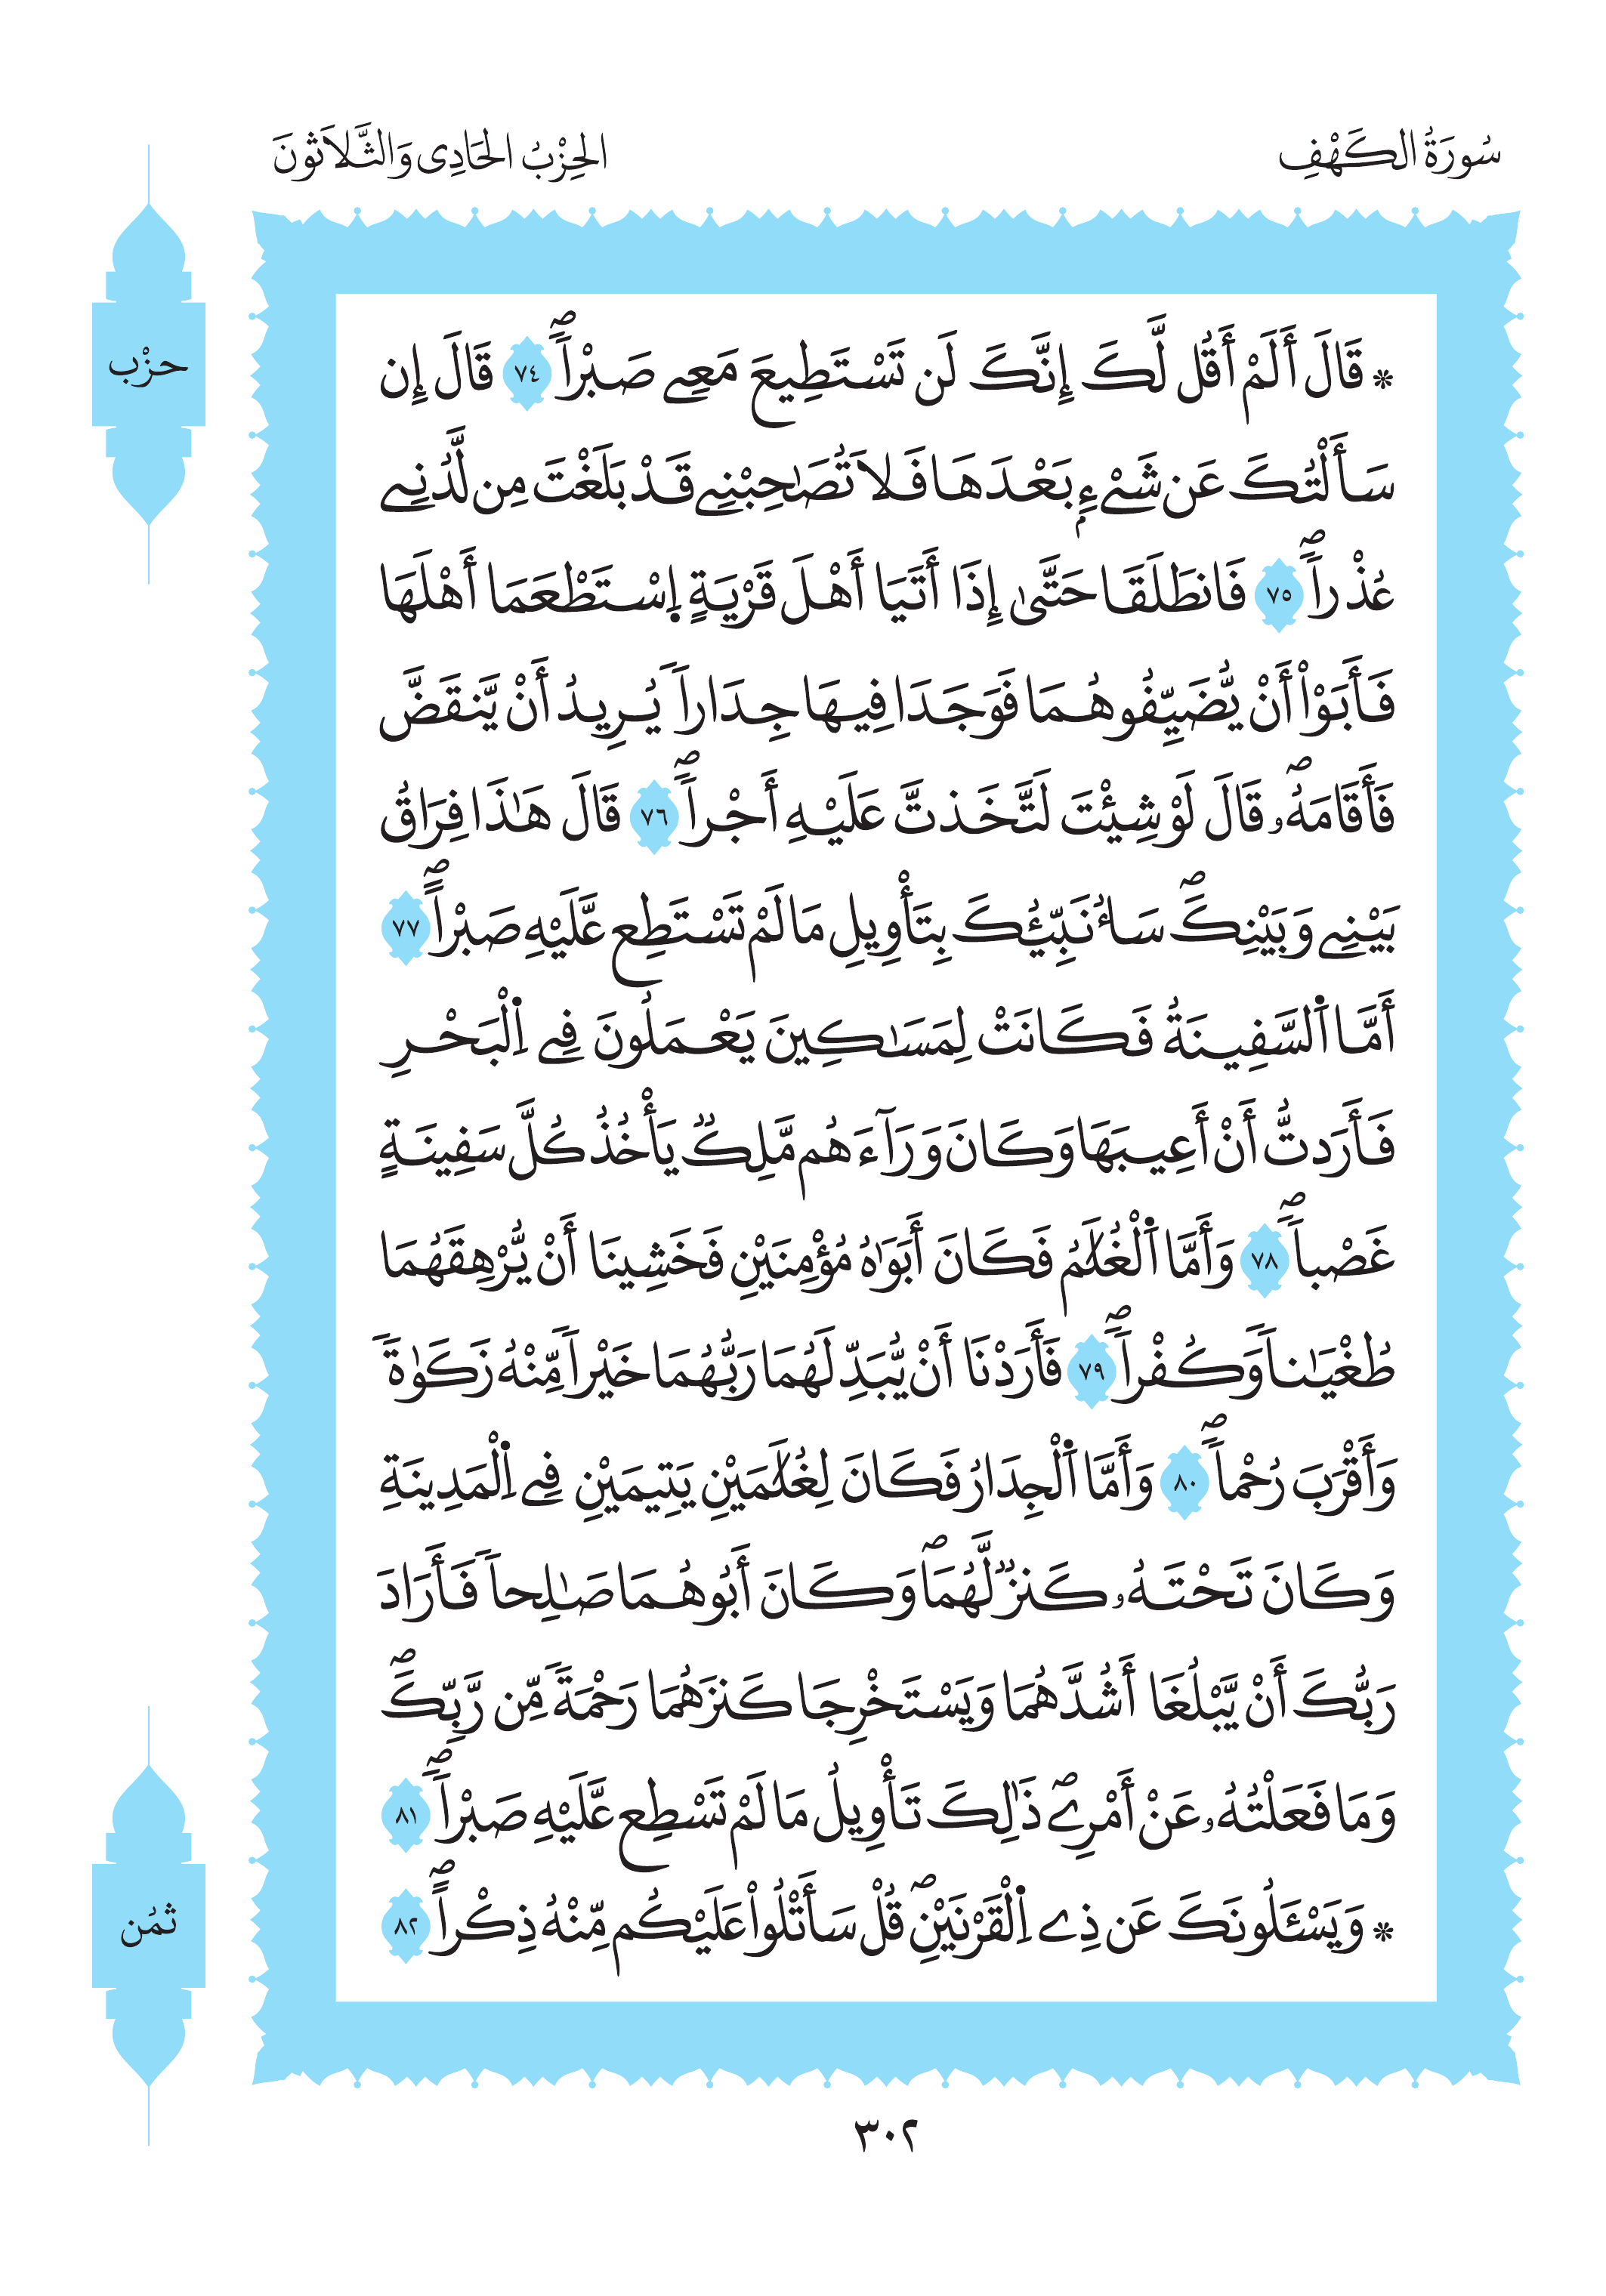 سُورَةُ الكَهْفِ
الحِزْبُ الحَادِى وَالثَّلَاثُونَ
حزْب
* قَالَ أَلَمْ أَقُل لَّكَ إِنَّكَ لَن تَسْتَطِيعَ مَعِے صَبْراࣰۖ ٧٤ قَالَ إِن
سَأَلْتُكَ عَن شَےْءِۢ بَعْدَهَا فَلَا تُصَٰحِبْنِے قَدْ بَلَغْتَ مِن لَّدُنِے
عُذْراࣰۖ ٧٥ فَانطَلَقَا حَتَّىٰ إِذَا أَتَيَا أَهْلَ قَرْيَةٍ اِ۪سْتَطْعَمَا أَهْلَهَا
فَأَبَوْاْ أَنْ يُّضَيِّفُوهُمَا فَوَجَدَا فِيهَا جِدَاراࣰ يُرِيدُ أَنْ يَّنقَضَّ
فَأَقَامَهُۥۖ قَالَ لَوْ شِئْتَ لَتَّخَذتَّ عَلَيْهِ أَجْراࣰۖ ٧٦ قَالَ هَٰذَا فِرَاقُ
بَيْنِے وَبَيْنِكَۖ سَأُنَبِّئُكَ بِتَأْوِيلِ مَا لَمْ تَسْتَطِع عَّلَيْهِ صَبْراًۖ ٧٧
أَمَّا اَ۬لسَّفِينَةُ فَكَانَتْ لِمَسَٰكِينَ يَعْمَلُونَ فِے اِ۬لْبَحْرِ
فَأَرَدتُّ أَنْ أَعِيبَهَا وَكَانَ وَرَآءَهُم مَّلِكࣱ يَأْخُذُ كُلَّ سَفِينَةٍ
غَصْباࣰۖ ٧٨ وَأَمَّا اَ۬لْغُلَٰمُ فَكَانَ أَبَوَٰهُ مُؤْمِنَيْنِ فَخَشِينَا أَنْ يُّرْهِقَهُمَا
طُغْيَٰناࣰ وَكُفْراࣰۖ ٧٩ فَأَرَدْنَا أَنْ يُّبَدِّلَهُمَا رَبُّهُمَا خَيْراࣰ مِّنْهُ زَكَوٰةࣰ
وَأَقْرَبَ رُحْماࣰۖ ٨٠ وَأَمَّا اَ۬لْجِدَارُ فَكَانَ لِغُلَٰمَيْنِ يَتِيمَيْنِ فِے اِ۬لْمَدِينَةِ
وَكَانَ تَحْتَهُۥ كَنزࣱ لَّهُمَاۖ وَكَانَ أَبُوهُمَا صَٰلِحاࣰ فَأَرَادَ
رَبُّكَ أَنْ يَّبْلُغَا أَشُدَّهُمَا وَيَسْتَخْرِجَا كَنزَهُمَا رَحْمَةࣰ مِّن رَّبِّكَۖ
وَمَا فَعَلْتُهُۥ عَنْ أَمْرِےۖ ذَٰلِكَ تَأْوِيلُ مَا لَمْ تَسْطِع عَّلَيْهِ صَبْراࣰۖ ٨١
* وَيَسْـَٔلُونَكَ عَن ذِے اِ۬لْقَرْنَيْنِۖ قُلْ سَأَتْلُواْ عَلَيْكُم مِّنْهُ ذِكْراًۖ ٨٢
ثمُن
٣٠٢